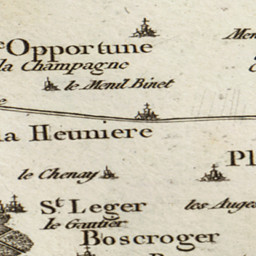 Opportune
la Champagne
le Menil Binet
la Heuniere
le Chenay
St. Leger
les Auges
le Gautier
Boscroger